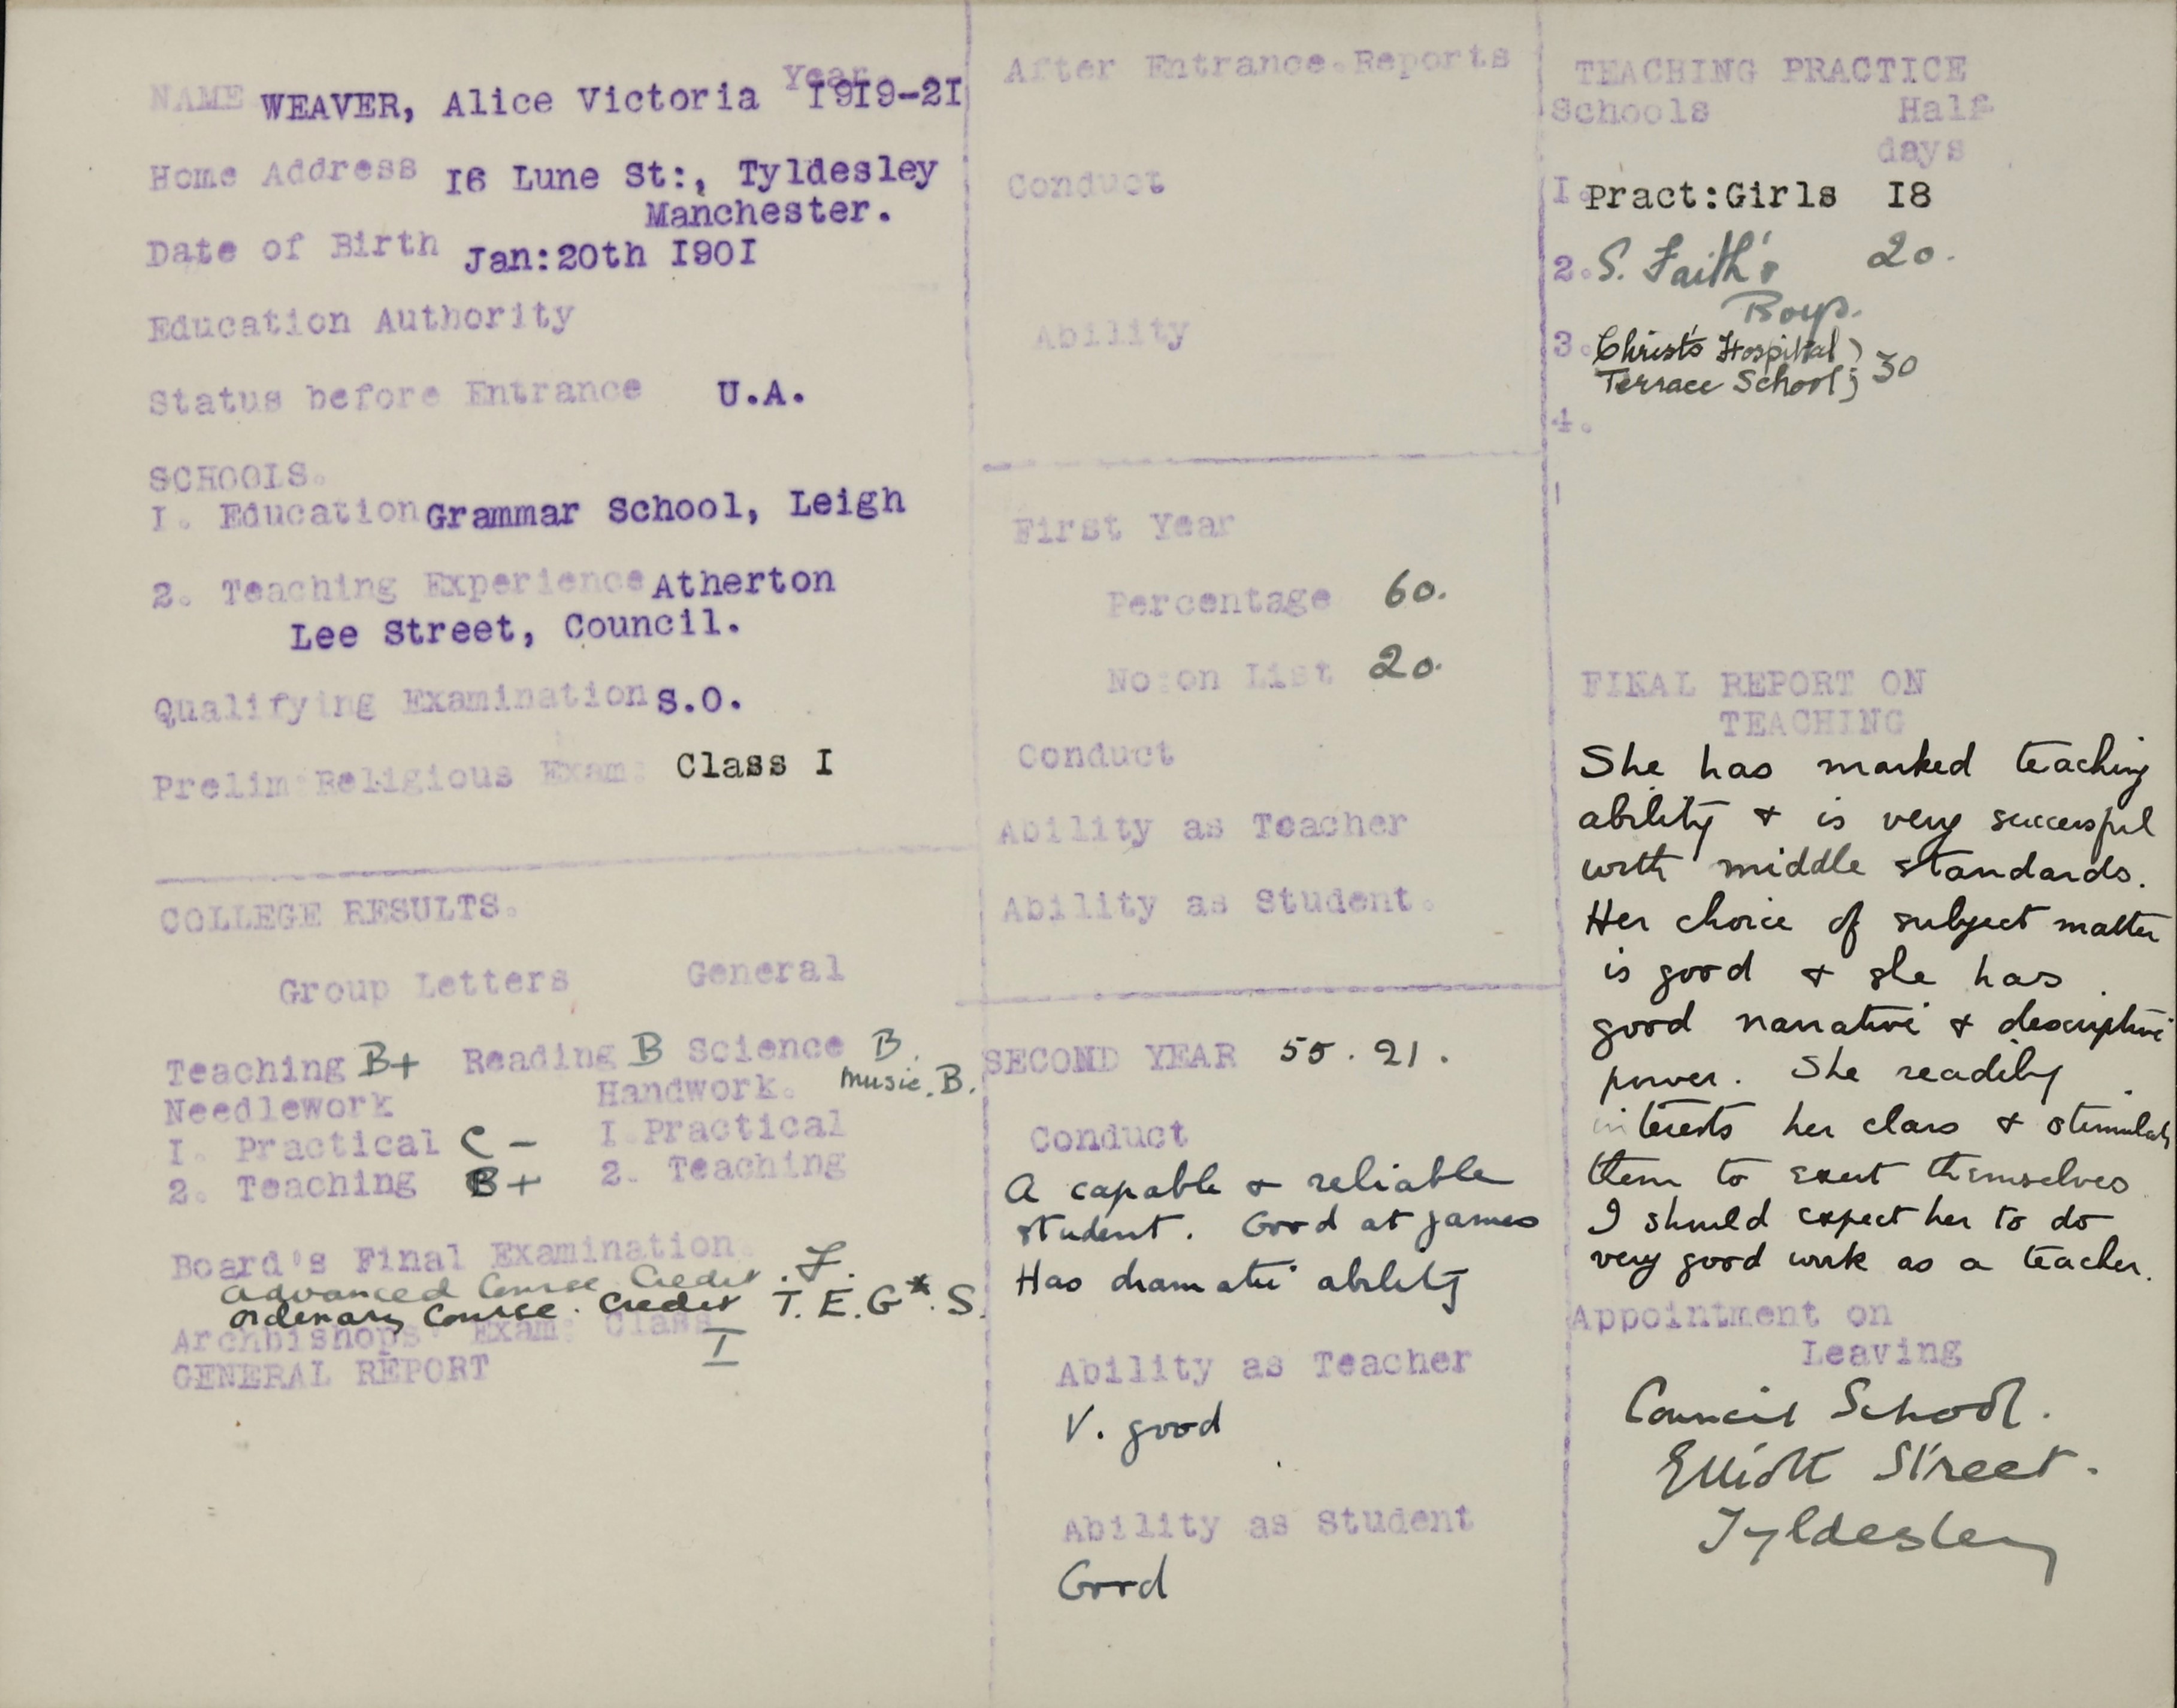 NAME WEAVER, Alice Victoria Year 1919-21
Home Address 16 Lune St:, Tyldesley
Manchester.
Date of Birth Jan:20th 1901
Education Authority
Status before Entrance U.A.
SCHOOLS.
I. Education Grammar School, Leigh
2. Teaching Experience Atherton
Lee Street, Council.
Qualifying Examination S.O.
Prelim Religious Exam: Class I
COLLEGE RESULTS.
Group Letters General
Teaching B+ Reading B Science B.
Needlework Handwork. Music. B.
I. Practical C - I Practical
2. Teaching B+ 2. Teaching
Board's Final Examination.
Advanced Course Credit. F.
Ordinary Course. Credit T. E. G*. S.
Archbishops' Exam: Class I
GENERAL REPORT
After Entrance.Reports
Conduct
Ability
First Year
Percentage 60.
No:on List 20.
Conduct
Ability as Teacher
Ability as Student.
SECOND YEAR 55. 21.
Conduct
A capable & reliable
student. Good at games
Has dramatic ability
Ability as Teacher
V. good
Ability as Student
Good
TEACHING PRACTICE
Schools Half
days
I. Pract:Girls 18
2. S. Faith's 20.
Boys.
3. Christ's Hospital )
Terrace School ) 30
4.
FINAL REPORT ON
TEACHING
She has marked teaching
ability & is very successful
with middle standards.
Her choice of subject matter
is good & she has
good narrative & descriptive
power. She readily
interests her class & stimulates
them to exert themselves
I should expect her to do
very good work as a teacher.
Appointment on
Leaving
Council School.
Elliott Street.
Tyldesley